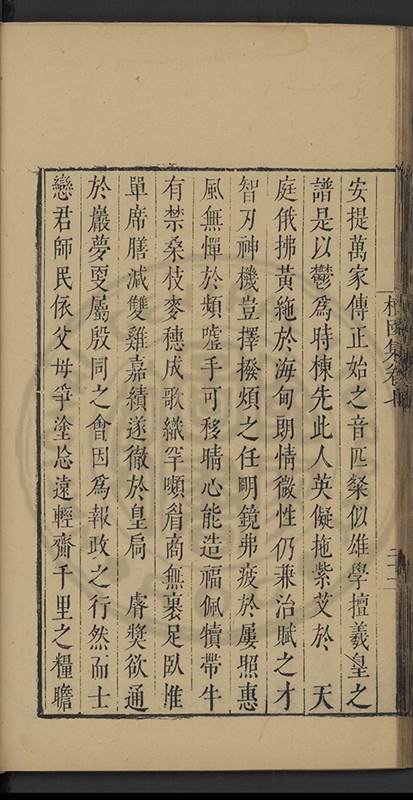 安提萬家傳正始之音匹槃似雄學擅羲皇之
譜是以鬱爲時棟先此人英儗拖紫艾於　天
庭俄拂黃絁於海甸朗情微性仍兼治賦之才
智刃神機豈擇撥煩之任明鏡弗疲於屢照惠
風無憚於頻噓手可移晴心能造福佩犢帶牛
有禁桑枝麥穗成歌織罕嚬眉商無裹足臥惟
單席膳減雙雞嘉績遂徹於皇扃　睿獎欲通
於巖夢爰屬殷同之會因爲報政之行然而士
戀君師民依父母爭塗忩遠輕齎千里之糧瞻
集卷